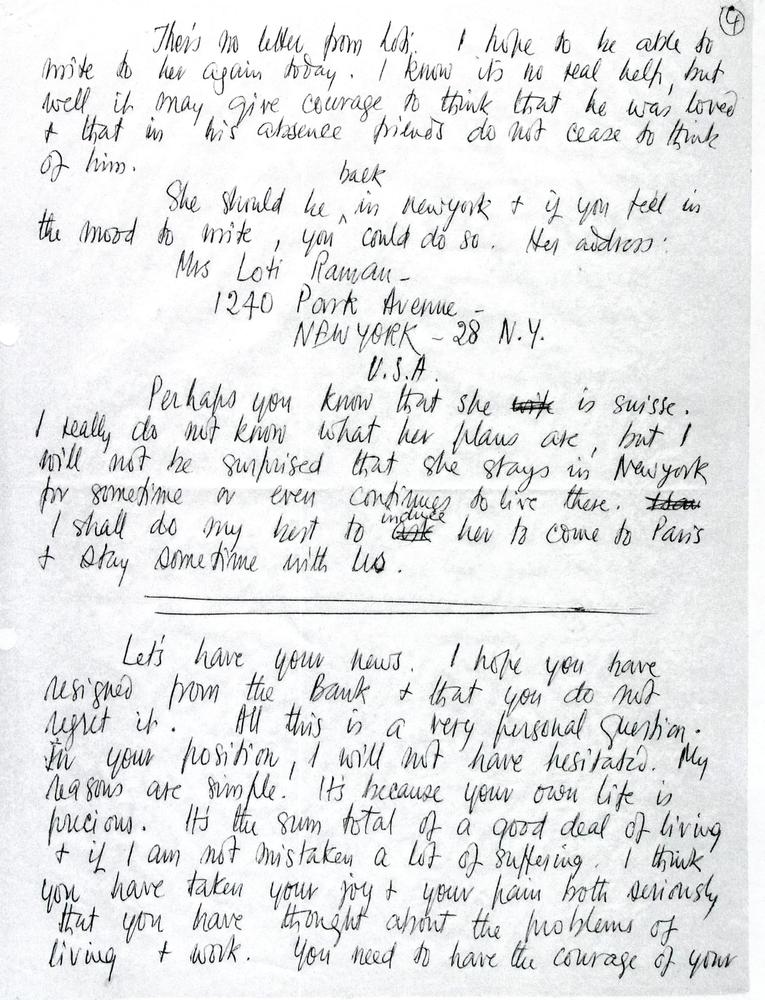 4
There's no letter from Loti. I hope to be able to
write to her again today. I know it's no real help, but
well it may give courage to think that he was loved
+ that in his absence friends do not cease to think
of him.
back
She should be ^ in newyork + if you feel in
the mood to write, you could do so. Her address:
Mrs Loti Raman -
1240 Park Avenue -
NEW YORK - 28 N.Y.
U.S.A.
Perhaps you know that she is suisse.
I really do not know what her plans are, but I
will not be surprised that she stays in Newyork
for sometime or even continues to live there.
induce
I shall do my best to ask her to come to Paris
+ stay sometime with us.
Let's have your news. I hope you have
resigned from the Bank + that you do not
regret it. All this is a very personal question.
In your position, I will not have hesitated. My
reasons are simple. It's because your own life is
precious. It's the sum total of a good deal of living
+ if I am not mistaken a lot of suffering. I think
you have taken your joy + your pain both seriously
that you have thought about the problems of
living + work. You need to have the courage of your